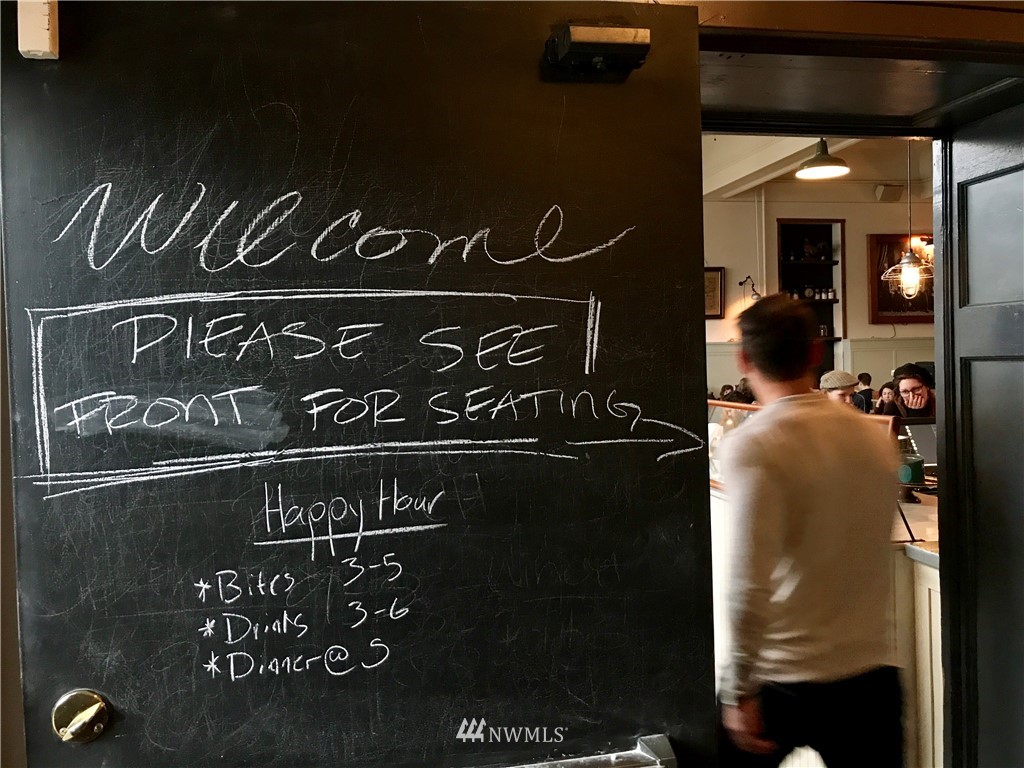 Welcome
PLEASE SEE
FRONT FOR SEATING
Happy Hour
*Bites 3-5
*Drinks 3-6
*Dinner@5
NWMLS